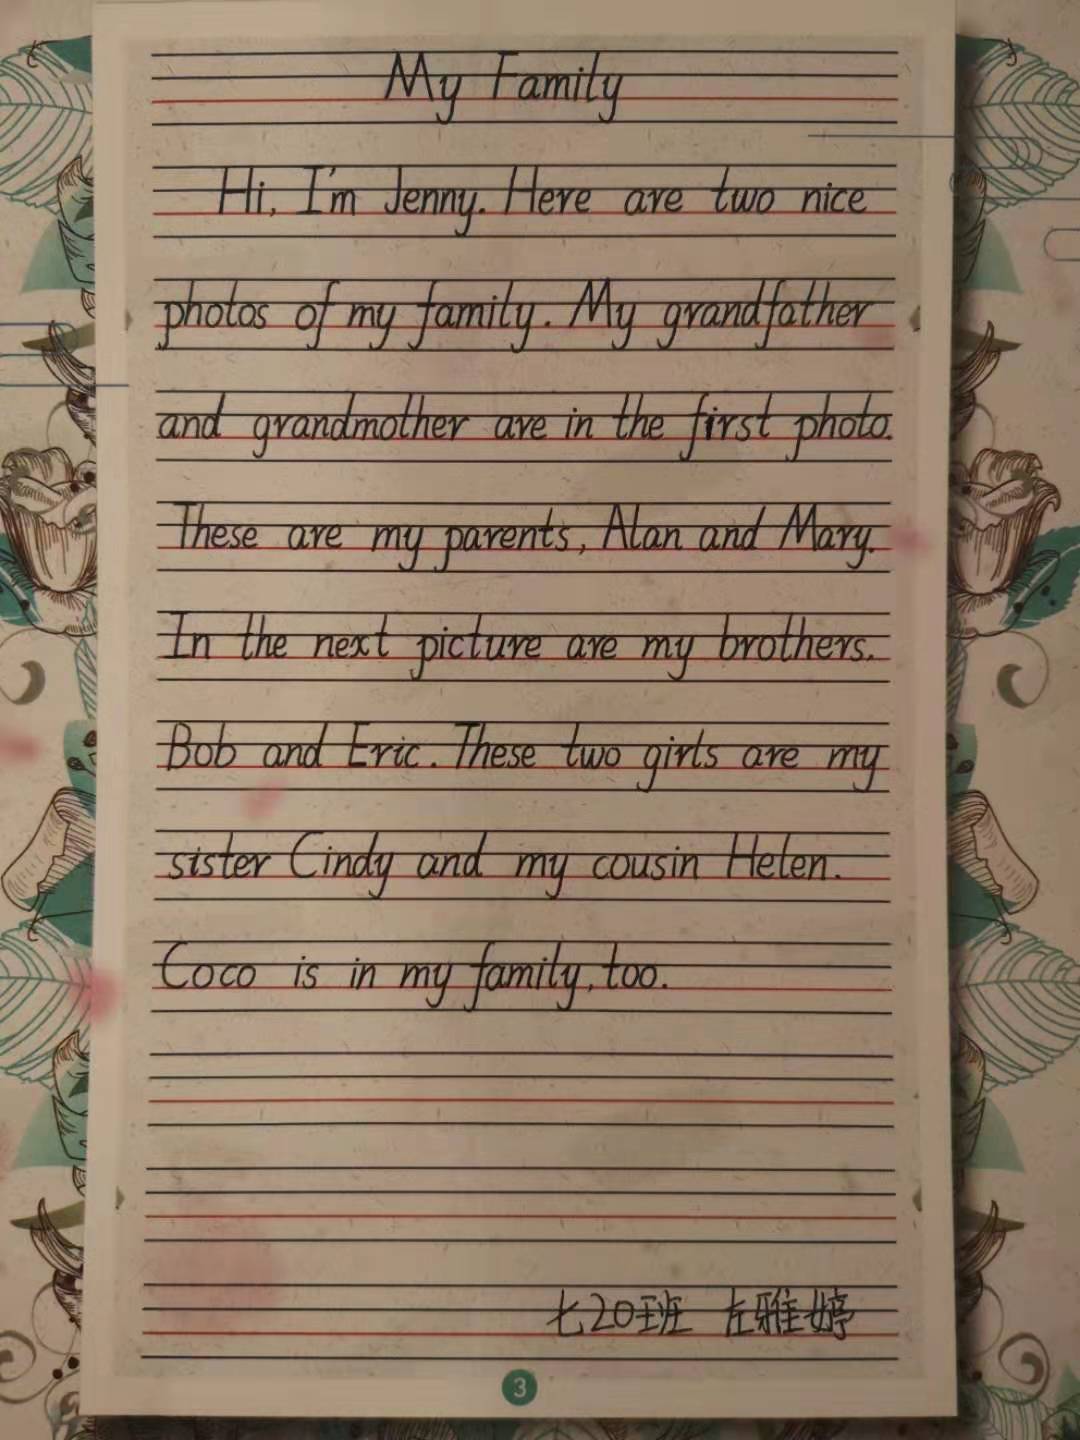 My Family
Hi, I'm Jenny. Here are two nice
photos of my family. My grandfather
and grandmother are in the first photo.
These are my parents, Alan and Mary.
In the next picture are my brothers.
Bob and Eric. These two girls are my
sister Cindy and my cousin Helen.
Coco is in my family, too.
七20班 左雅婷
3